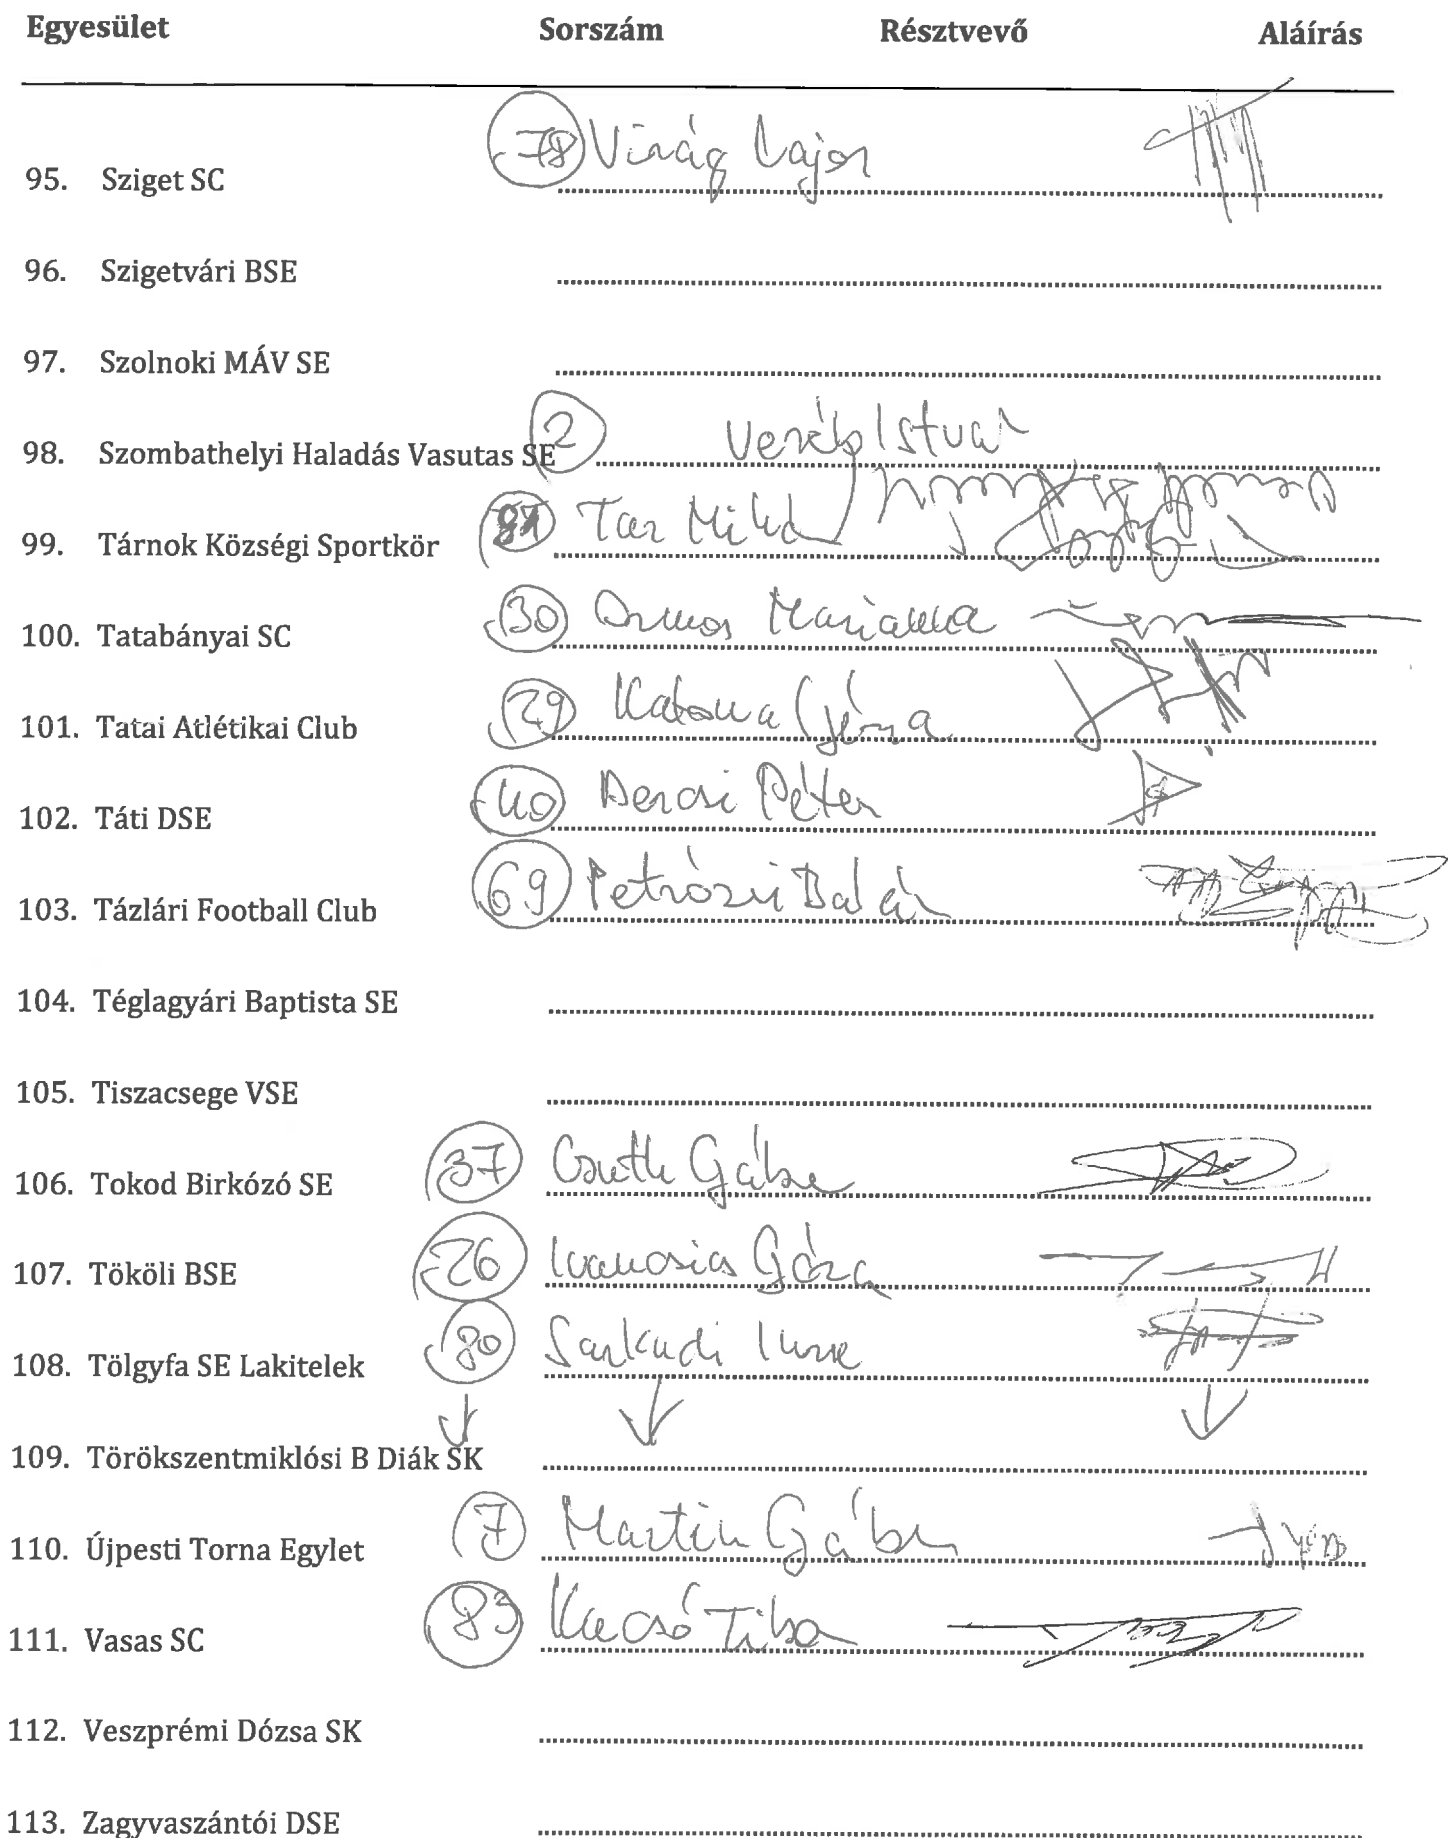 Egyesület Sorszám Résztvevő Aláírás
95. Sziget SC 78 Virág Lajos
96. Szigetvári BSE
97. Szolnoki MÁV SE
98. Szombathelyi Haladás Vasutas SE 2 Veréb István
99. Tárnok Községi Sportkör Tar
100. Tatabányai SC 30 Ormos Marianna
101. Tatai Atlétikai Club 29 Katona Géza
102. Táti DSE 40 Bercsi Péter
103. Tázlári Football Club 69
104. Téglagyári Baptista SE
105. Tiszacsege VSE
106. Tokod Birkózó SE 37 Csuth Gábor
107. Tököli BSE 26 Ivanosics Géza
108. Tölgyfa SE Lakitelek 80 Sarkadi Imre
109. Törökszentmiklósi B Diák SK
110. Újpesti Torna Egylet 7 Martin Gábor
111. Vasas SC 83 Kacsó Tibor
112. Veszprémi Dózsa SK
113. Zagyvaszántói DSE